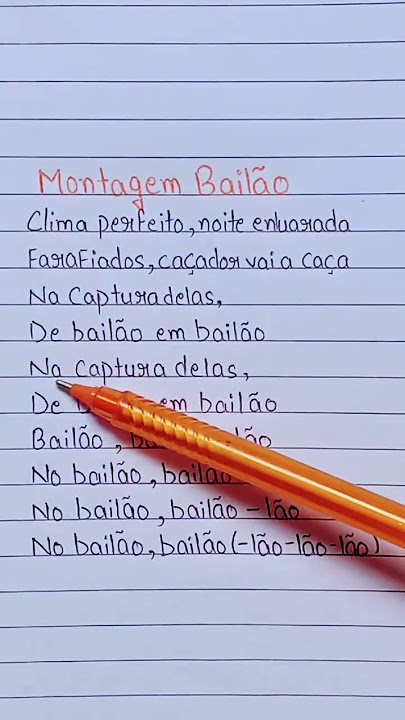 Montagem Bailão
Clima perfeito, noite enluarada
FaraFiados, caçador vai a caça
Na Captura delas,
De bailão em bailão
Na Captura delas,
De em bailão
Bailão,
No bailão, bailão
No bailão, bailão -lão
No bailão, bailão (-lão-lão-lão)